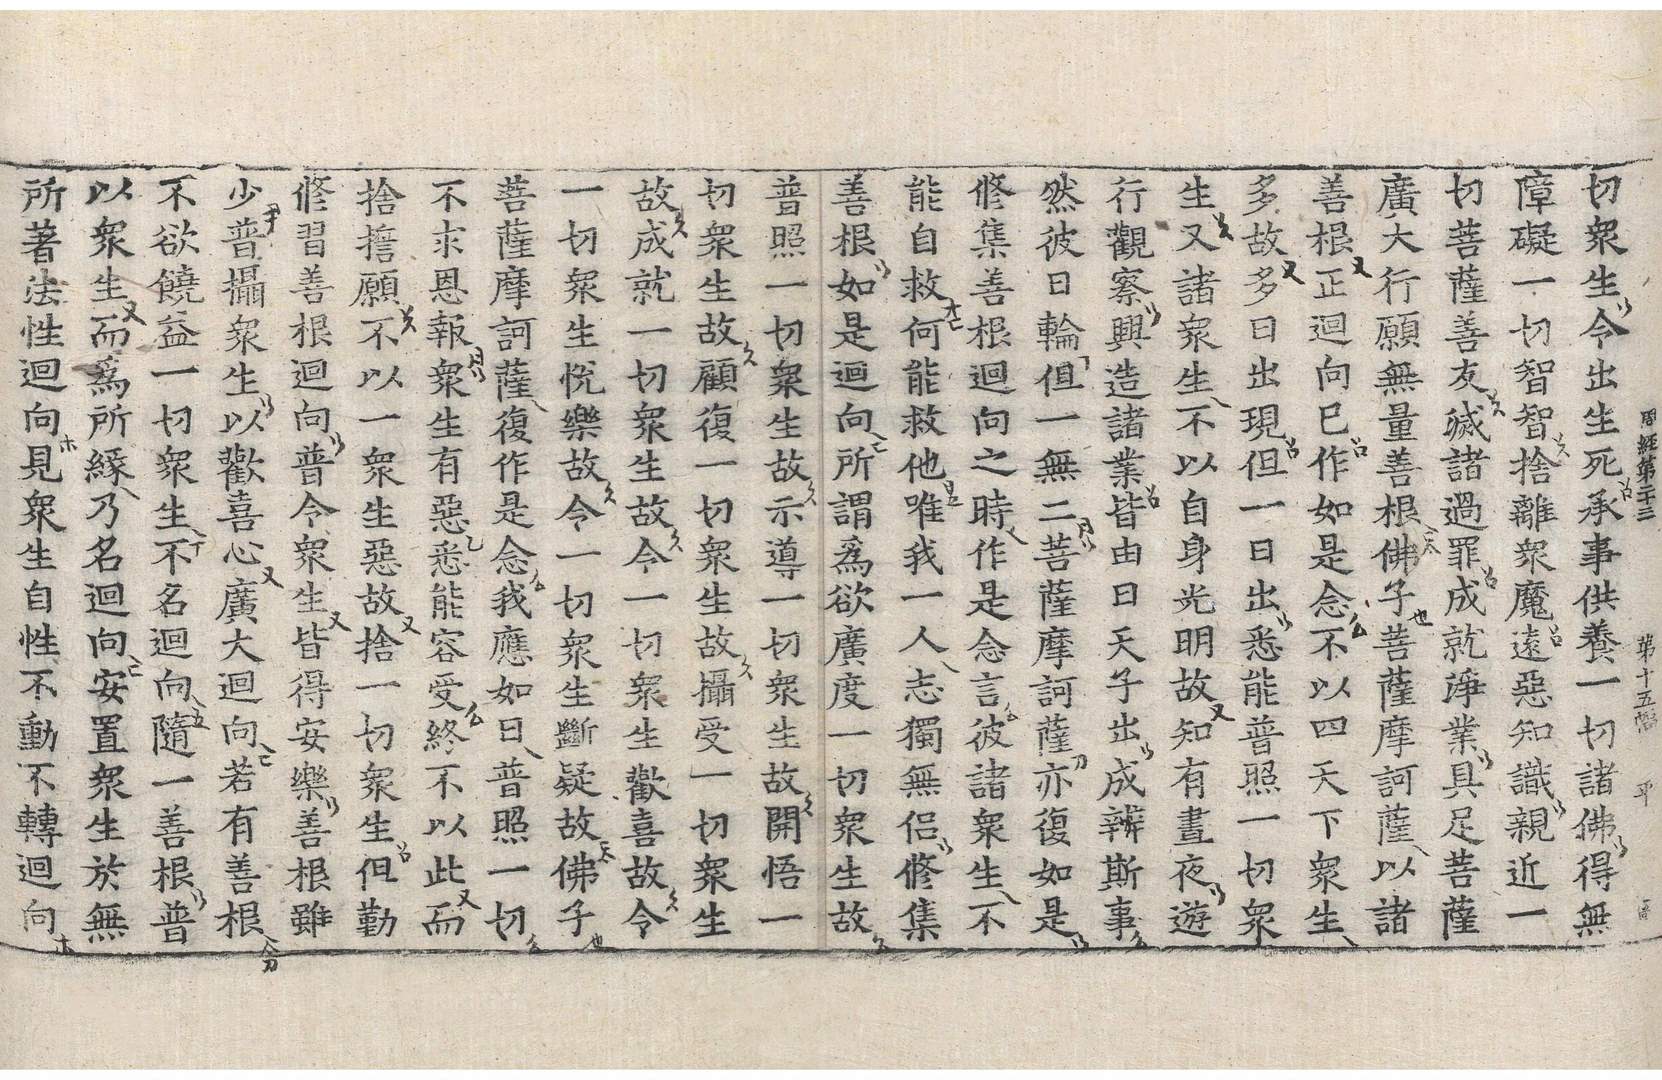 周經第二十三 第十五幅 平
切衆生令出生死承事供養一切諸佛得無
障礙一切智智捨離衆魔遠惡知識親近一
切菩薩善友滅諸過罪成就淨業具足菩薩
廣大行願無量善根佛子菩薩摩訶薩以諸
善根正迴向已作如是念不以四天下衆生
多故多日出現但一日出悉能普照一切衆
生又諸衆生不以自身光明故知有晝夜遊
行觀察興造諸業皆由日天子出成辨斯事
然彼日輪但一無二菩薩摩訶薩亦復如是
修集善根迴向之時作是念言彼諸衆生不
能自救何能救他唯我一人志獨無侶修集
善根如是迴向所謂爲欲廣度一切衆生故
普照一切衆生故示導一切衆生故開悟一
切衆生故顧復一切衆生故攝受一切衆生
故成就一切衆生故令一切衆生歡喜故令
一切衆生悅樂故令一切衆生斷疑故佛子
菩薩摩訶薩復作是念我應如日普照一切
不求恩報衆生有惡悉能容受終不以此而
捨誓願不以一衆生惡故捨一切衆生但勤
修習善根迴向普令衆生皆得安樂善根雖
少普攝衆生以歡喜心廣大迴向若有善根
不欲饒益一切衆生不名迴向隨一善根普
以衆生而爲所緣乃名迴向安置衆生於無
所著法性迴向見衆生自性不動不轉迴向